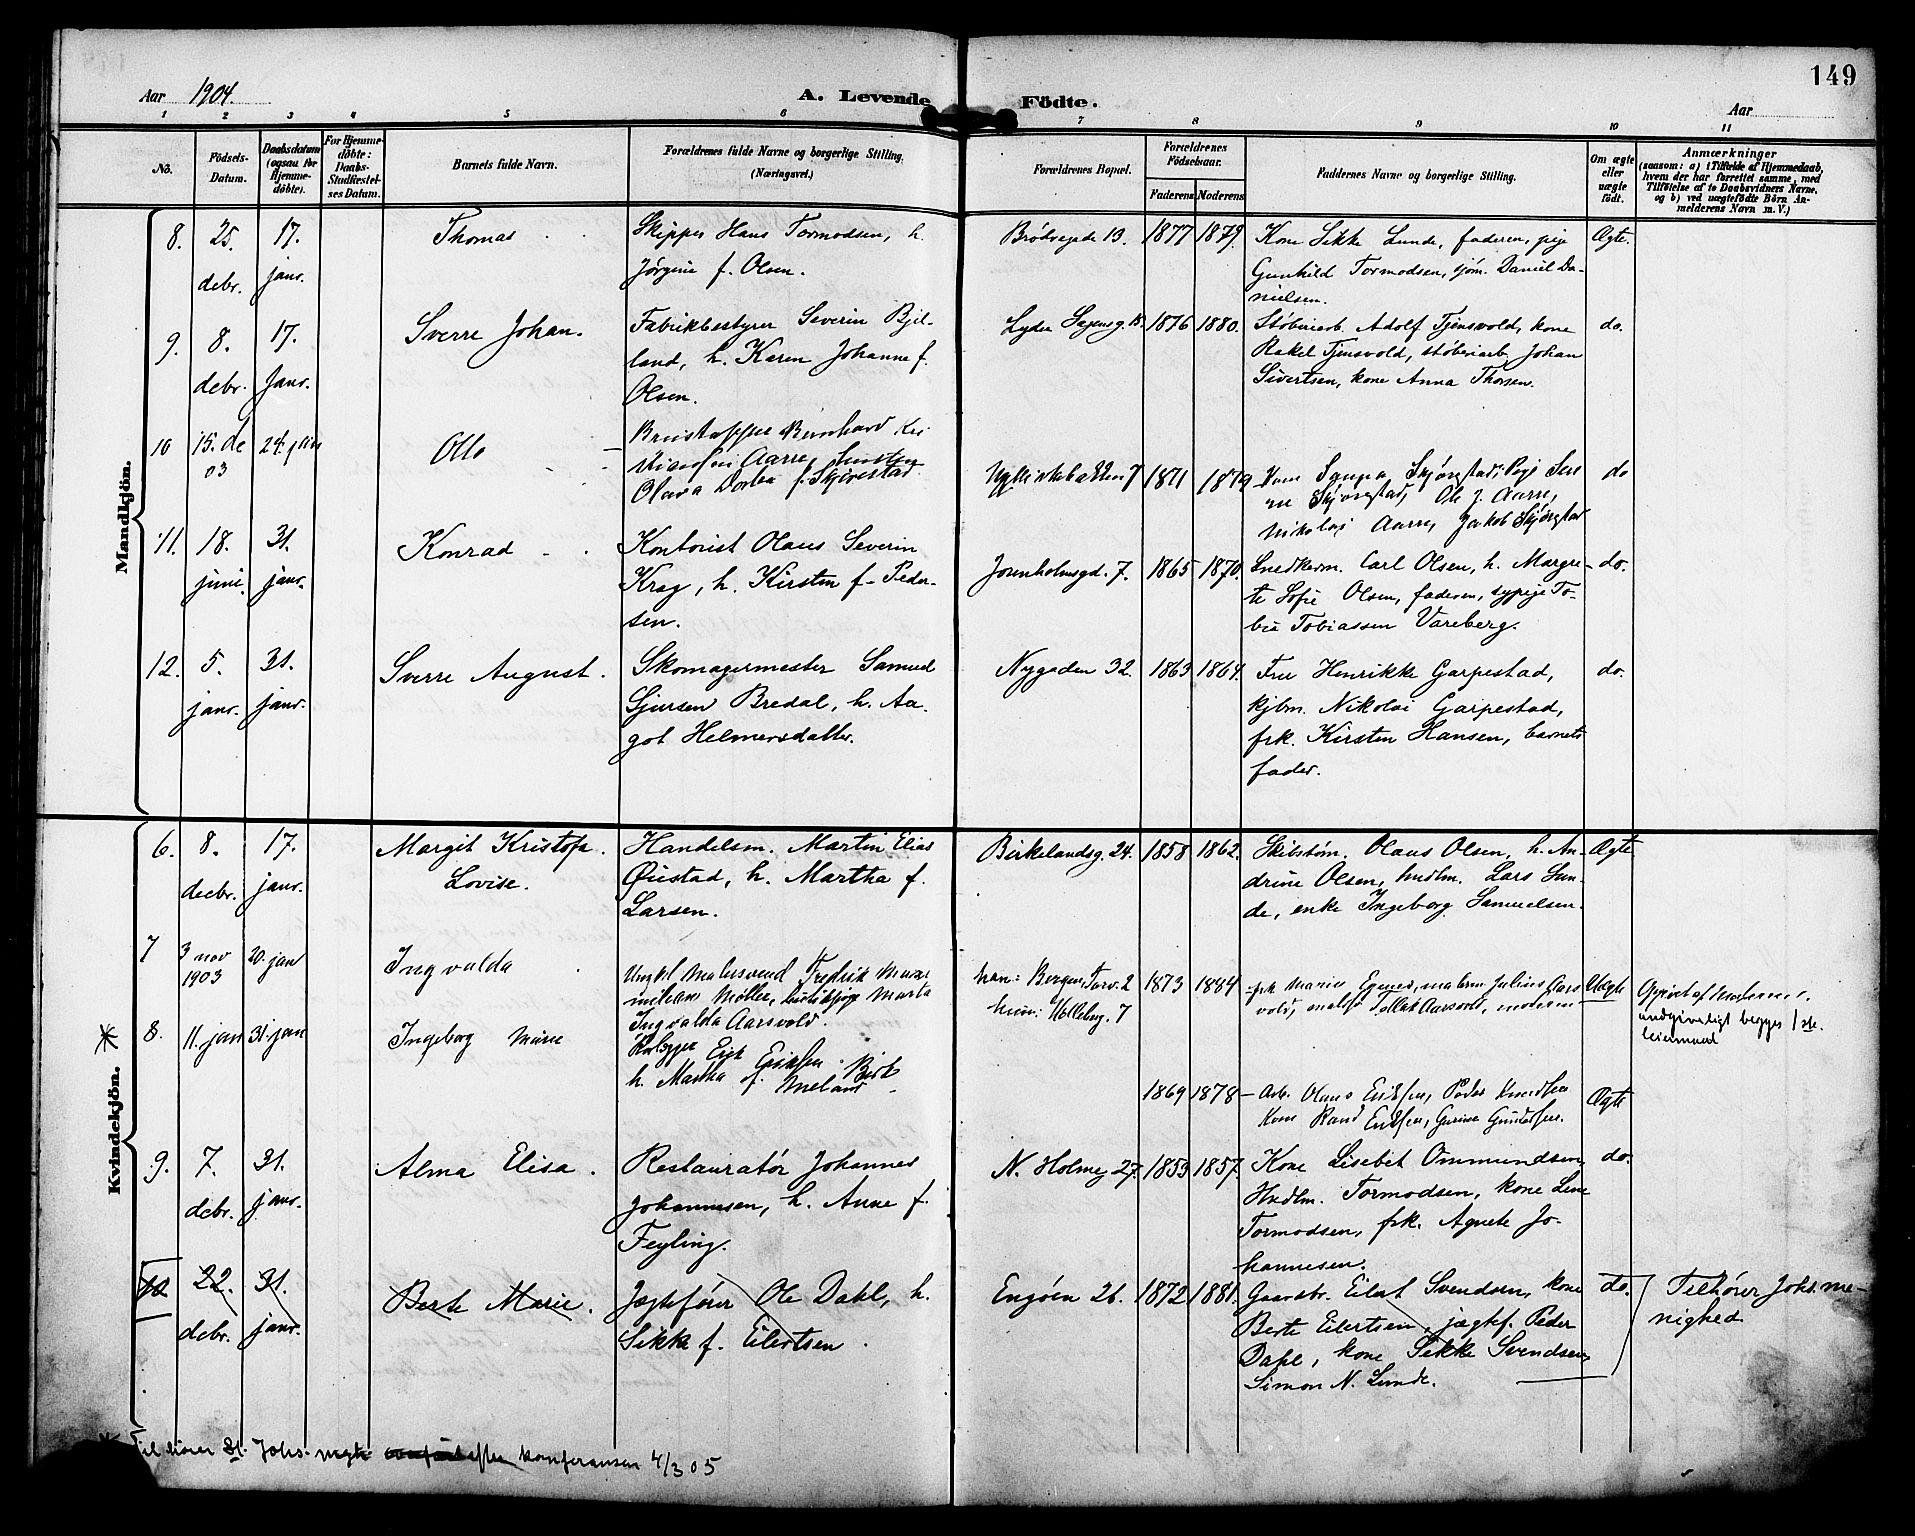 149
Aar 1904.
A. Levende Födte.
Aar
1 2 3 4 5 6 7 8 9 10 11
No.
Födsels-Datum.
Daabsdatum (ogsaa for Hjemme-döbte).
For Hjemme-döbte: Daabs-Stadfæstel-ses Datum.
Barnets fulde Navn.
Forældrenes fulde Navne og borgerlige Stilling. (Næringsvei.)
Forældrenes Bopæl.
Forældrenes Födselsaar.
Faderens Moderens
Faddernes Navne og borgerlige Stilling.
Om ægte eller uægte födt.
Anmærkninger
(saasom: a) i Tilfælde af Hjemmedaab, hvem der har forrettet samme, med Tilföielse af to Daabsvidners Navne, og b) ved uægtefödte Börn An-melderens Navn m. V.)
Mandkjön.
8. 25. debr. 17. janr.
Thomas
Skipper Hans Tormodsen, h.
Jørgine f. Olsen.
Brødregade 13. 1877 1879.
Kone Sikke Lunde, faderen, pige
Gunhild Tormodsen, sjøm. Daniel Da-
nielsen.
Ægte.
9. 8. debr. 17. Janr.
Sverre Johan.
Fabrikbestyrer Severin Bjel-
land, h. Karen Johanne f.
Olsen.
Lyder Sagensg. 18. 1876 1880.
Støberiarb. Adolf Tjensvold, kone
Rakel Tjensvold, støberiarb. Johan
Sivertsen, kone Anna Thorsen.
do.
10 15. de 03 24. jan
Olto
Bernhard Kri
Aarre,
Olava Dorthea f. Skjørestad
7 1871 1879
Skjørestad, Pige Seri
ne Skjørestad, Ole J. Aarre,
Nikolai Aarre, Jakob Skjørestad
do
11. 18. juni. 31. janr.
Konrad
Kontorist Olaus Severin
Krag, h. Kirsten f. Peder-
sen.
Jorenholmsgd. 7. 1865 1870.
Snedkerm. Carl Olsen, h. Margre-
te Sofie Olsen, faderen, sypige To-
bie Tobiassen Vareberg.
do.
12. 5. janr. 31. janr.
Sverre August.
Skomagermester Samuel
Sjursen Bredal, h. Aa-
got Helmersdatter.
Nygaden 32. 1863 1864.
Fru Henrikke Garpestad,
kjbm. Nikolai Garpestad,
frk. Kirsten Hansen, barnets
fader.
do.
Kvindekjön.
6. 8. decbr. 17. janr.
Margit Kristofa
Lovise.
Handelsm. Martin Elias
Øiestad, h. Martha f.
Larsen.
Birkelandsg. 24. 1858 1862.
Skibstøm. Olaus Olsen, h. An-
drine Olsen, hndlm. Lars Sun-
de, enke Ingeborg Samuelsen.
Ægte
7 3 nov 1903 20. jan
Ingvalda
Ungkl Malersvend Fredrik Maxi
milian Møller, butikpige Marta
Ingvalda Aarsvold.
han: Bergen, Torv. 2
hun: Møllebg. 7
1873 1884
frk Marie malerm Julius Aars
vold, Tollak Aarsvold, moderen
Uægte
Opgivet af Moderen.
undgiveligt begges 1ste.
leiermaal
* 8. 11. jan 31. jan
Ingeborg Marie
Erik Eriksen Birk
h. Martha f. Meland
1869 1878
Arb. Olaus Eriksen, Peder Knudsen
Kone Rand Eriksen, Gurine Gundersen.
Ægte
9. 7. debr. 31. janr.
Alma Elisa.
Restauratør Johannes
Johannesen, h. Anne f.
Feyling.
N. Holmeg 27. 1853 1857.
Kone Lisebet Ommundsen
Hndlm. Tormodsen, kone Line
Tormodsen, frk. Agnete Jo-
hannesen.
do.
10 22. debr. 31. janr.
Berte Marie.
Jægtefører Ole Dahl, h.
Sikke f. Eilertsen.
Engøen 26. 1872 1881.
Gaardbr. Eilert Svendsen, kone
Berte Eilertsen, jægtef. Peder
Dahl, kone Sikke Svendsen,
Simon N. Lunde.
do.
Tilhører Johs. me-
nighed.
* Til hører St. Johs. mght konferansen 4/3 05